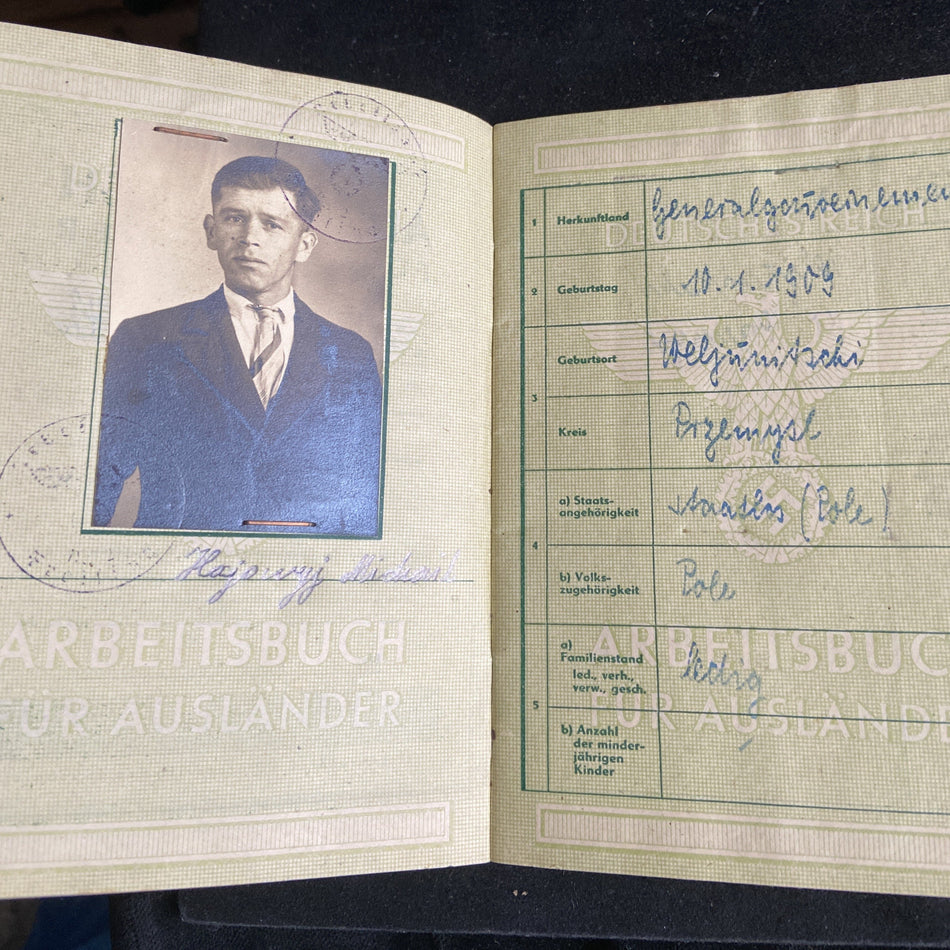 Hajowyj Michael
ARBEITSBUCH
FÜR AUSLÄNDER
DEUTSCHES REICH
1 Herkunftland Generalgouvernemen
2 Geburtstag 10. 1. 1909
3 Geburtsort Weljunitschi
Kreis Przemysl
4 a) Staats-
angehörigkeit staatlos (Pole)
b) Volks-
zugehörigkeit Pole
5 a)
Familienstand ledig
led., verh.,
verw., gesch.
b) Anzahl
der minder-
jährigen
Kinder
ARBEITSBUC
FÜR AUSLÄNDE